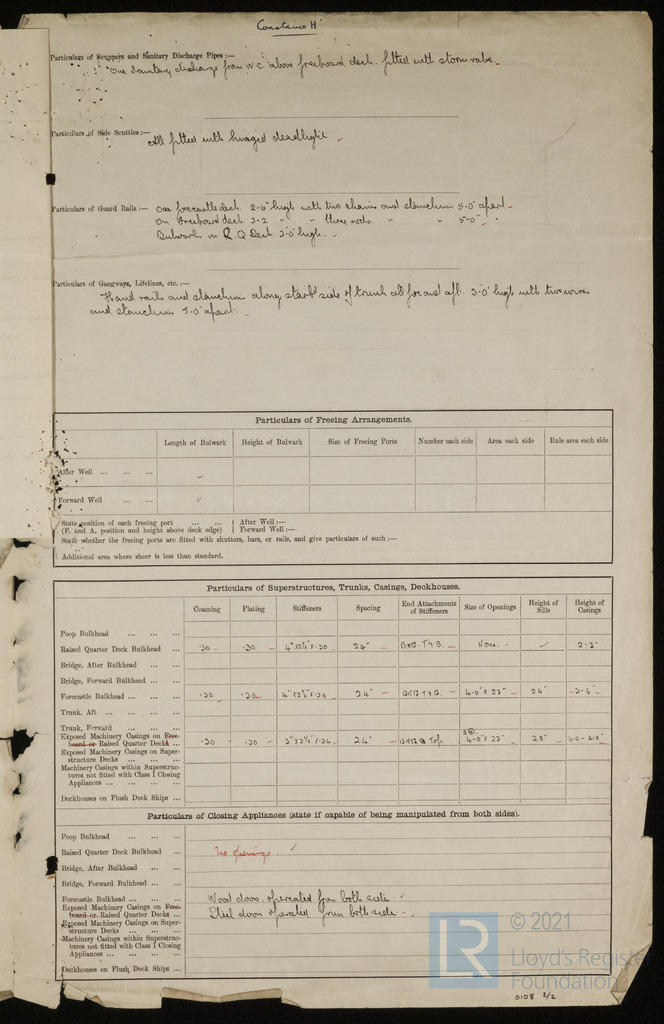 Constance H
Particulars of Scuppers and Sanitary Discharge Pipes :—
One Sanitary discharge from W.C above freeboard deck. fitted with storm valve.
Particulars of Side Scuttles :—
All fitted with hinged deadlights
Particulars of Guard Rails :—
On forecastle deck 2-6" high with two chains and stanchions 5-0" apart
On Freeboard deck 3-2 " " three rods " " 5-0"
Bulwarks on R.Q Deck 3-0" high.
Particulars of Gangways, Lifelines, etc. :—
Hand rails and stanchions along starbd side of trunk all fore and aft. 3-0" high with two wires
and stanchions 5-0" apart.
Particulars of Freeing Arrangements.
Length of Bulwark Height of Bulwark Size of Freeing Ports Number each side Area each side Rule area each side
After Well ... ... ...
Forward Well ... ...
State position of each freeing port ... ... After Well :—
(F. and A. position and height above deck edge) Forward Well :—
State whether the freeing ports are fitted with shutters, bars, or rails, and give particulars of such :—
Additional area where sheer is less than standard.
Particulars of Superstructures, Trunks, Casings, Deckhouses.
Coaming Plating Stiffeners Spacing End Attachments of Stiffeners Size of Openings Height of Sills Height of Casings
Poop Bulkhead ... ... ...
Raised Quarter Deck Bulkhead ... .30 .30 24" None
Bridge, After Bulkhead ... ...
Bridge, Forward Bulkhead ...
Forecastle Bulkhead ... ... .30 .30 24" 4-0" x 22"
Trunk, Aft ... ... ...
Trunk, Forward ... ...
Exposed Machinery Casings on Free-
board or Raised Quarter Decks ... .30 .30 24" 4-0" x 22"
Exposed Machinery Casings on Super-
structure Decks ... ...
Machinery Casings within Superstruc-
tures not fitted with Class I Closing
Appliances ... ... ...
Deckhouses on Flush Deck Ships ...
Particulars of Closing Appliances (state if capable of being manipulated from both sides).
Poop Bulkhead ... ... ...
Raised Quarter Deck Bulkhead ... No openings
Bridge, After Bulkhead ... ...
Bridge, Forward Bulkhead ... ...
Forecastle Bulkhead ... ... Wood doors operated from both sides
Exposed Machinery Casings on Free-
board or Raised Quarter Decks ... Steel doors operated from both sides
Exposed Machinery Casings on Super-
structure Decks ... ...
Machinery Casings within Superstruc-
tures not fitted with Class I Closing
Appliances ... ... ...
Deckhouses on Flush Deck Ships ...
LR
© 2021
Lloyd's Register
Foundation
0108 2/2